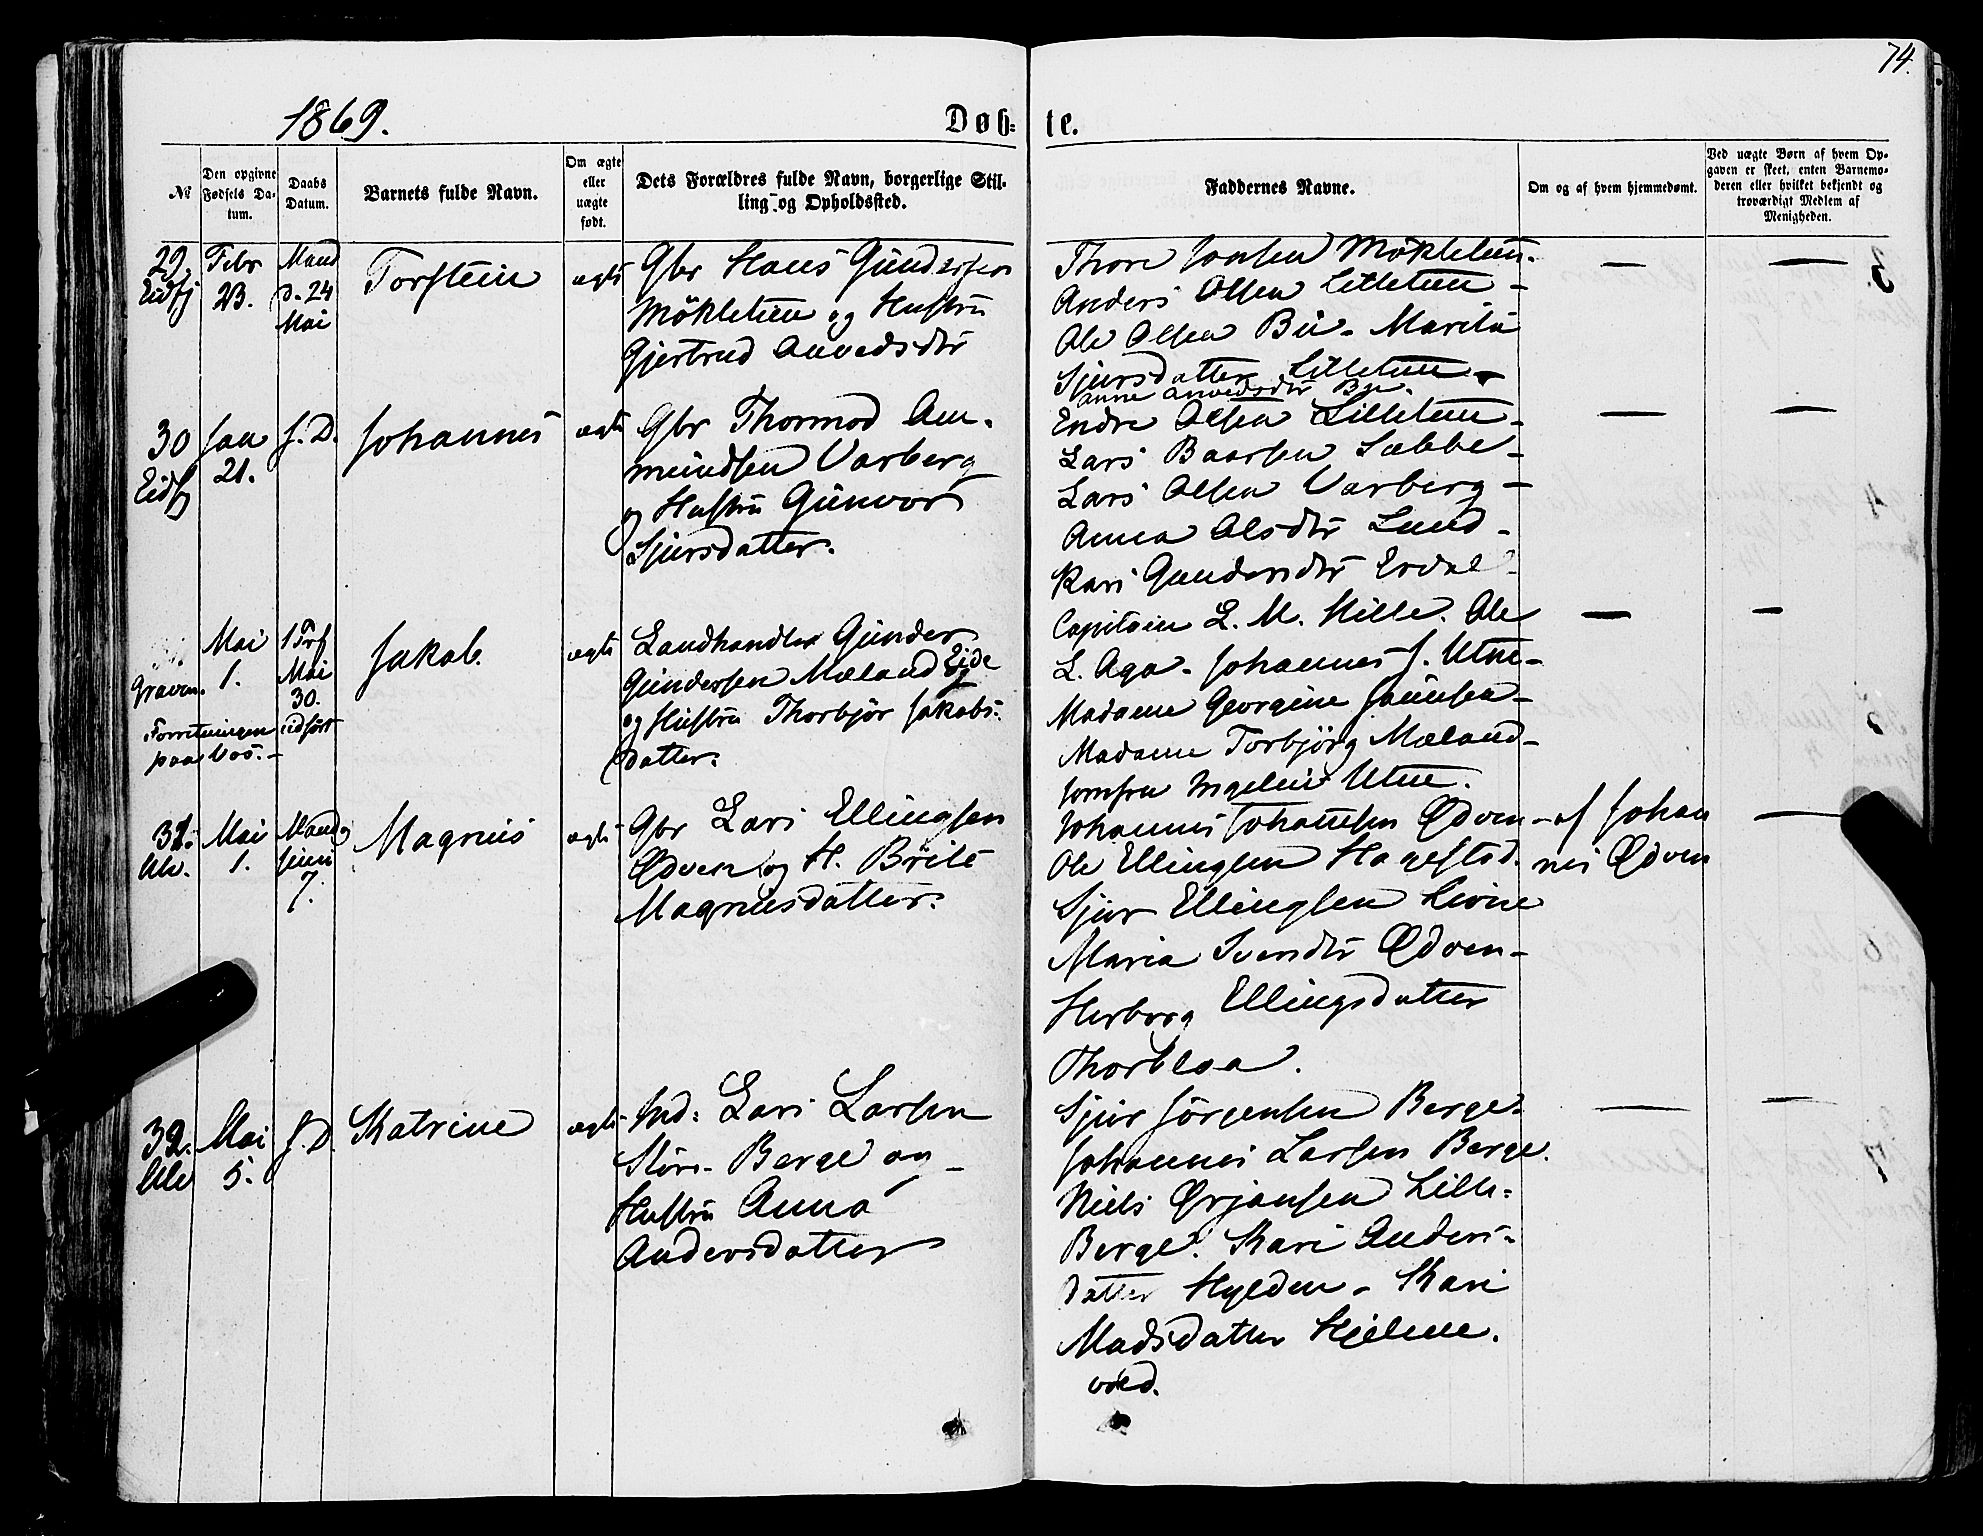 74.
1869.
Døb-
te.
№
Den opgivne
Fødsels Da-
tum.
Daabs
Datum.
Barnets fulde Navn.
Om ægte
eller
uægte
født.
Dets Forældres fulde Navn, borgerlige Stil-
ling og Opholdssted.
Faddernes Navne.
Om og af hvem hjemmedøbt.
Ved uægte Børn af hvem Op-
gaven er skeet, enten Barnemo-
deren eller hvilket bekjendt og
troværdigt Medlem af
Menigheden.
29.
Eidfj
Febr
23.
Mand
d. 24
Mai
Torstein
ægte
Gbr Hans Gundersen
Møkletun og Hustru
Gjertrud Anvedsdtr
Thore Jonsen Møkletun.
Anders Olsen Lilletun -
Ole Olsen Bu - Marita
Sjursdatter Lilletun -
Anne Anvedsdtr Bu.
30
Eidfj
Jan
21.
s. D.
Johannes
ægte
Gbr Thormod Am-
mundsen Varberg
og Hustru Gunvor
Sjursdatter.
Endre Olsen Lilletun -
Lars Baarsen Sæbbe -
Lars Olsen Varberg -
Anna Olsdtr Lund -
Kari Gundersdtr Erdal -
Graven.
Forretningen
paa Vos. -
Mai
1.
1 Trf
Mai
30.
idført
Jakob.
ægte
Landhandler Gunder
Gundersen Mæland Eide
og Hustru Thorbjør Jakobs-
datter.
Capitain L. M. Hille. Ole
L. Aga - Johannes J. Utne -
Madame Georgine Jaunsen -
Madame Torbjørg Mæland -
Jomfru Ingeleiv Utne.
31.
Ulv.
Mai
1.
Mand
Juni
7.
Magnus
ægte
Gbr Lars Ellingsen
Ødven og H. Brite
Magnusdatter.
Johannes Johannesen Ødven -
Ole Ellingsen Hagestad.
Sjur Ellingsen Livine
Maria Svendtr Ødven -
Herborg Ellingsdatter
Thorbloa.
af Johan
nes Ødven
32.
Ulv
Mai
5.
s. D.
Katrine
ægte
Ind: Lars Larsen
Støre - Berge og -
Hustru Anna
Andersdatter
Sjur Jørgensen Berge.
Johannes Larsen Berge.
Niels Ørjansen Lille-
Berge. Kari Anders-
datter Hylden - Kari
Madsdatter Hjelme-
vold.